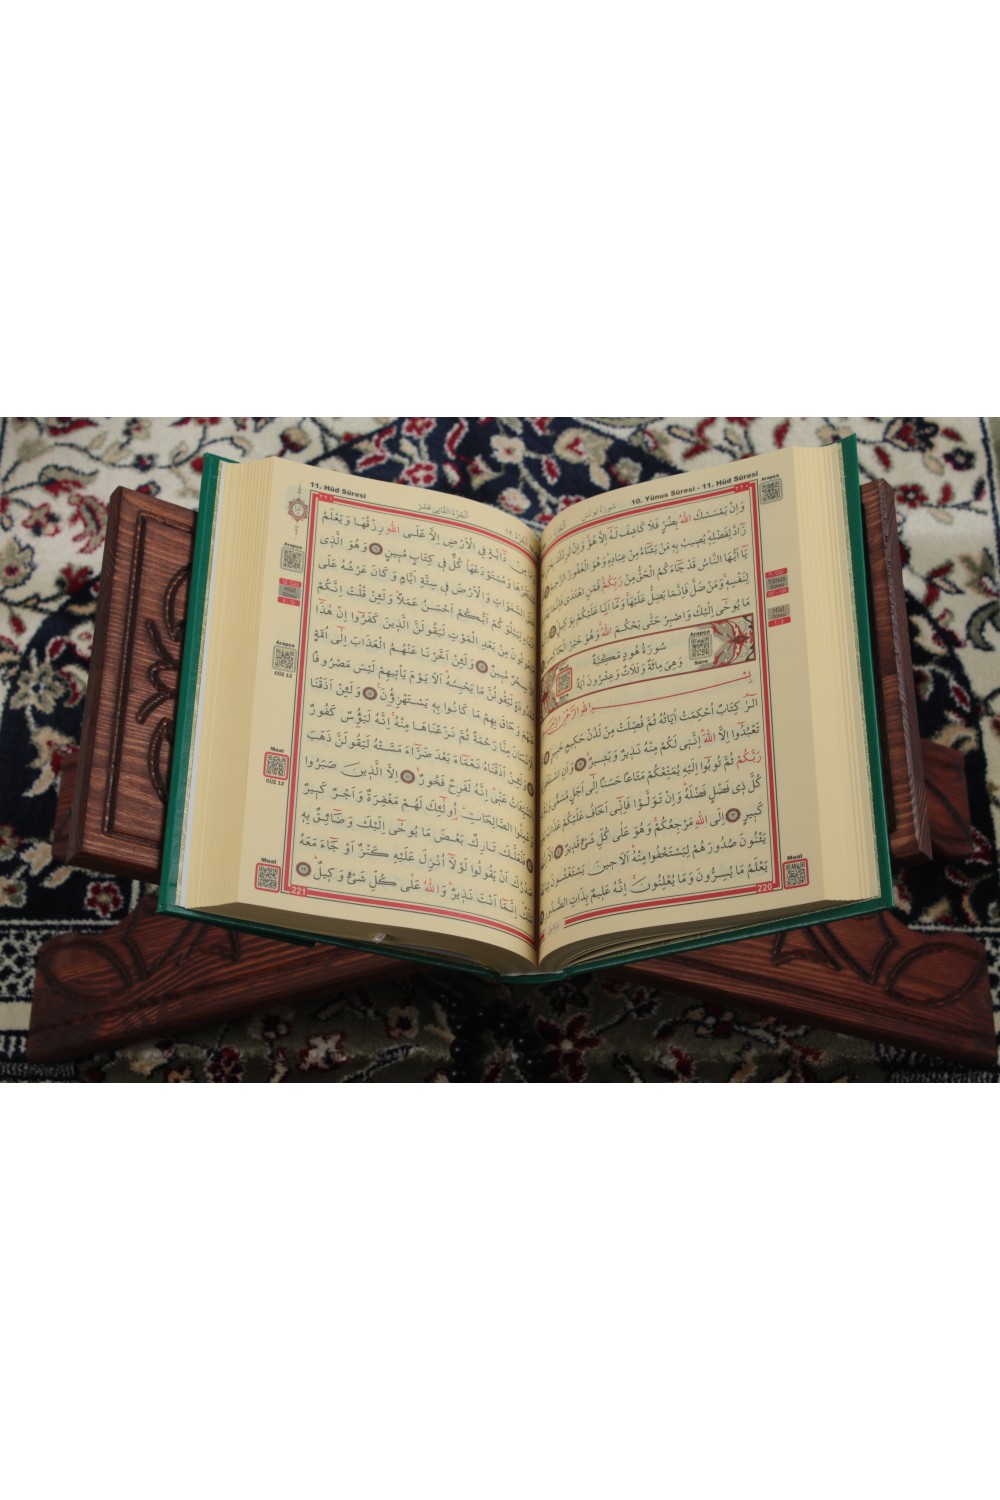 10. Yûnus Sûresi - 11. Hûd Sûresi
سُورَةُ يُونُسَ
Arapça
وَاِنْ يَمْسَسْكَ اللّٰهُ بِضُرٍّ فَلَا كَاشِفَ لَهُ اِلَّا هُوَ وَاِنْ يُرِدْكَ بِخَيْرٍ
رَٓادَّ لِفَضْلِهِ يُصِيبُ بِهِ مَنْ يَشَٓاءُ مِنْ عِبَادِهِ وَهُوَ الْغَفُورُ الرَّحِيمُ
يَٓا اَيُّهَا النَّاسُ قَدْ جَٓاءَكُمُ الْحَقُّ مِنْ رَبِّكُمْ فَمَنِ اهْتَدٰى فَاِنَّمَا
لِنَفْسِهِ وَمَنْ ضَلَّ فَاِنَّمَا يَضِلُّ عَلَيْهَا وَمَٓا اَنَا عَلَيْكُمْ بِوَكِيلٍ
مَا يُوحٰٓى اِلَيْكَ وَاصْبِرْ حَتّٰى يَحْكُمَ اللّٰهُ وَهُوَ خَيْرُ الْحَاكِمِينَ
سُورَةُ هُودٍ مَكِّيَّةٌ
وَهِيَ مِائَةٌ وَثَلَاثٌ وَعِشْرُونَ اٰيَةً
Arapça
Sûre
بِسْمِ اللّٰهِ الرَّحْمٰنِ الرَّحِيمِ
الٓرٰ كِتَابٌ اُحْكِمَتْ اٰيَاتُهُ ثُمَّ فُصِّلَتْ مِنْ لَدُنْ حَكِيمٍ خَبِيرٍ
تَعْبُدُٓوا اِلَّا اللّٰهَ اِنَّنِي لَكُمْ مِنْهُ نَذِيرٌ وَبَشِيرٌ وَاَنِ اسْتَغْفِرُوا
رَبَّكُمْ ثُمَّ تُوبُٓوا اِلَيْهِ يُمَتِّعْكُمْ مَتَاعًا حَسَنًا اِلٰٓى اَجَلٍ مُسَمًّى
كُلَّ ذِي فَضْلٍ فَضْلَهُ وَاِنْ تَوَلَّوْا فَاِنِّٓي اَخَافُ عَلَيْكُمْ عَذَابَ
كَبِيرٍ اِلَى اللّٰهِ مَرْجِعُكُمْ وَهُوَ عَلٰى كُلِّ شَيْءٍ قَدِيرٌ
يَثْنُونَ صُدُورَهُمْ لِيَسْتَخْفُوا مِنْهُ اَلَا حِينَ يَسْتَغْشُونَ
يَعْلَمُ مَا يُسِرُّونَ وَمَا يُعْلِنُونَ اِنَّهُ عَلِيمٌ بِذَاتِ الصُّدُورِ
Meal
220
11. Hûd Sûresi
اَلْجُزْءُ الثَّانِي عَشَرَ
مِنْ دَٓابَّةٍ فِي الْاَرْضِ اِلَّا عَلَى اللّٰهِ رِزْقُهَا وَيَعْلَمُ
وَمُسْتَوْدَعَهَا كُلٌّ فِي كِتَابٍ مُبِينٍ وَهُوَ الَّذِي
السَّمٰوَاتِ وَالْاَرْضَ فِي سِتَّةِ اَيَّامٍ وَكَانَ عَرْشُهُ عَلَى
لِيَبْلُوَكُمْ اَيُّكُمْ اَحْسَنُ عَمَلًا وَلَئِنْ قُلْتَ اِنَّكُمْ
مِنْ بَعْدِ الْمَوْتِ لَيَقُولَنَّ الَّذِينَ كَفَرُٓوا اِنْ هٰذَٓا
سِحْرٌ مُبِينٌ وَلَئِنْ اَخَّرْنَا عَنْهُمُ الْعَذَابَ اِلٰٓى اُمَّةٍ
لَيَقُولُنَّ مَا يَحْبِسُهُ اَلَا يَوْمَ يَأْتِيهِمْ لَيْسَ مَصْرُوفًا
وَحَاقَ بِهِمْ مَا كَانُوا بِهِ يَسْتَهْزِؤُنَ وَلَئِنْ اَذَقْنَا
الْاِنْسَانَ مِنَّا رَحْمَةً ثُمَّ نَزَعْنَاهَا مِنْهُ اِنَّهُ لَيَؤُسٌ كَفُورٌ
وَلَئِنْ اَذَقْنَاهُ نَعْمَٓاءَ بَعْدَ ضَرَّٓاءَ مَسَّتْهُ لَيَقُولَنَّ ذَهَبَ
السَّيِّـَٔاتُ عَنِّي اِنَّهُ لَفَرِحٌ فَخُورٌ اِلَّا الَّذِينَ صَبَرُوا
وَعَمِلُوا الصَّالِحَاتِ اُولٰٓئِكَ لَهُمْ مَغْفِرَةٌ وَاَجْرٌ كَبِيرٌ
فَلَعَلَّكَ تَارِكٌ بَعْضَ مَا يُوحٰٓى اِلَيْكَ وَضَٓائِقٌ بِهِ
صَدْرُكَ اَنْ يَقُولُوا لَوْلَٓا اُنْزِلَ عَلَيْهِ كَنْزٌ اَوْ جَٓاءَ مَعَهُ
اِنَّمَٓا اَنْتَ نَذِيرٌ وَاللّٰهُ عَلٰى كُلِّ شَيْءٍ وَكِيلٌ
Arapça
Arapça
CÜZ 12
Meal
CÜZ 12
Meal
221